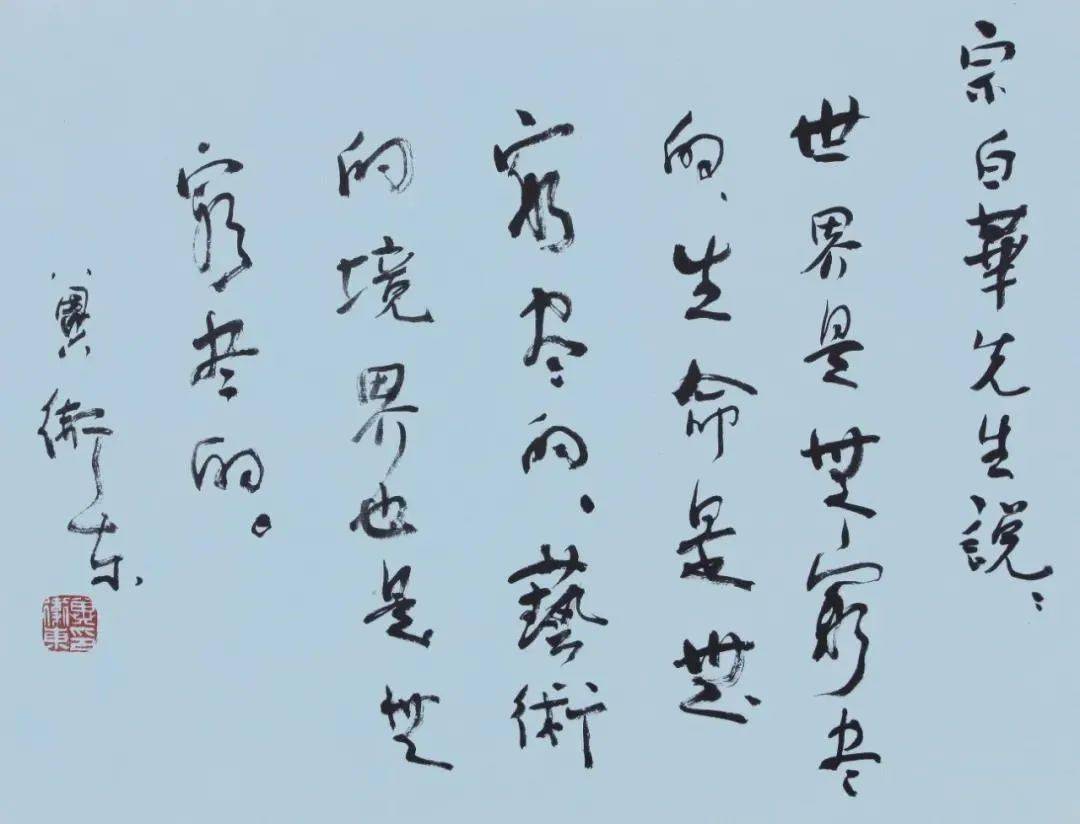 宗白華先生説：
世界是無窮尽
的、生命是無
窮尽的、藝術
的境界也是無
窮尽的。
衛东
衛東